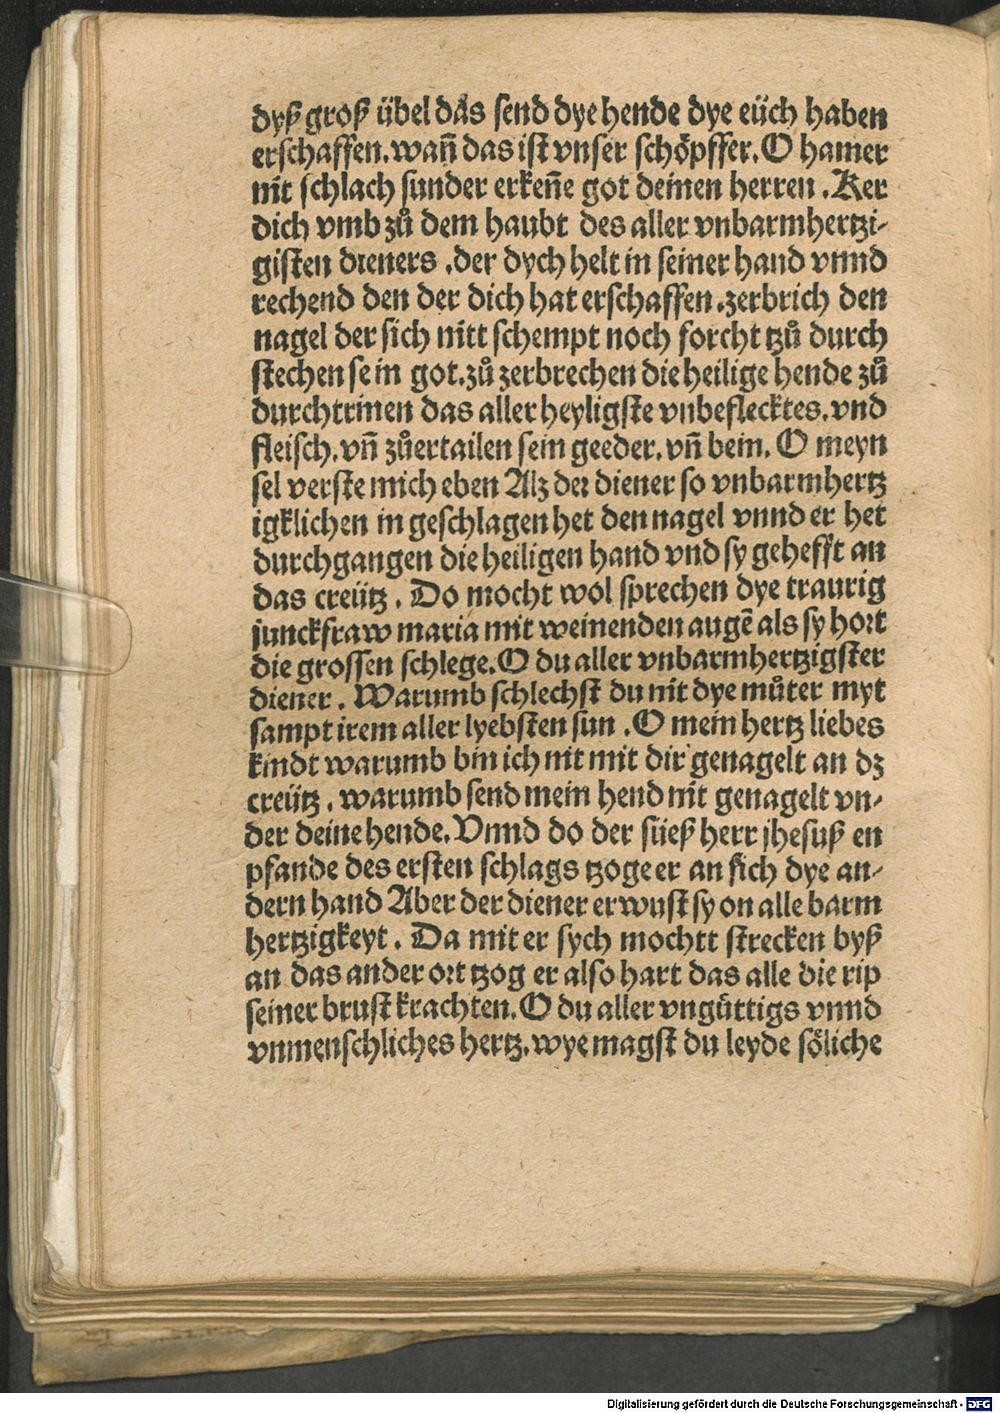 dyß groß übel das send dye hende dye eüch haben
erschaffen. wañ das ist vnser schöpffer. O hamer
nit schlach sunder erkeñe got deinen herren . Ker
dich vmb zů dem haubt des aller vnbarmhertzi-
gisten dieners . der dych helt in seiner hand vnnd
rechend den der dich hat erschaffen. zerbrich den
nagel der sich nitt schempt noch forcht tzů durch
stechen sein got. zů zerbrechen die heilige hende zů
durchtrinen das aller heyligste vnbeflecktes. vnd
fleisch. vñ zůertailen sein geeder. vñ bein. O meyn
sel verste mich eben Alz der diener so vnbarmhertz
igklichen in geschlagen het den nagel vnnd er het
durchgangen die heiligen hand vnd sy gehefft an
das creütz . Do mocht wol sprechen dye traurig
junckfraw maria mit weinenden augē als sy hort
die grossen schlege. O du aller vnbarmhertzigster
diener . Warumb schlechst du nit dye můter myt
sampt irem aller lyebsten sun . O mein hertz liebes
kindt warumb bin ich nit mit dir genagelt an dz
creütz . warumb send mein hend nit genagelt vn-
der deine hende. Vnnd do der süeß herr jhesuß en
pfande des ersten schlags tzoge er an sich dye an-
dern hand Aber der diener erwust sy on alle barm
hertzigkeyt . Da mit er sych mochtt strecken byß
an das ander ort tzog er also hart das alle die rip
seiner brust krachten. O du aller vngüttigs vnnd
vnmenschliches hertz. wye magst du leyde söliche
Digitalisierung gefördert durch die Deutsche Forschungsgemeinschaft - DFG